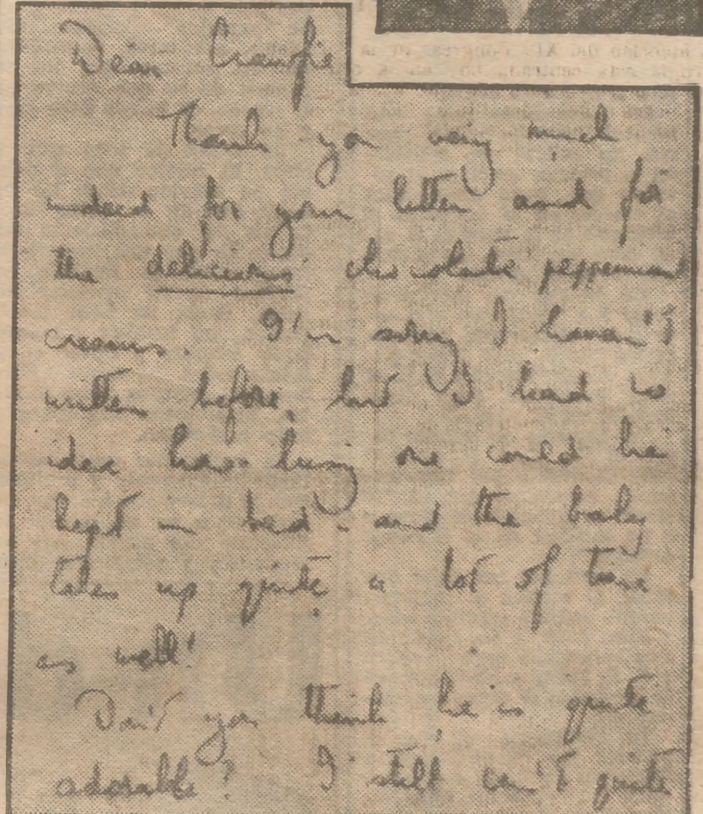 Dear Crawfie
Thank you very much
indeed for your letter and for
the delicious chocolate peppermint
creams. I'm sorry I haven't
written before, but I had no
idea how busy one could be
kept in bed - and the baby
takes up quite a lot of time
as well!
Don't you think he is quite
adorable? I still can't quite